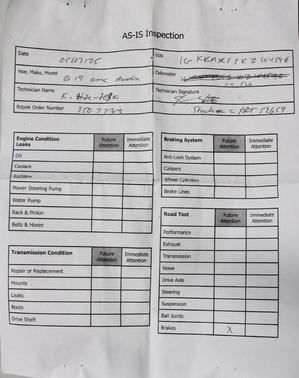 AS-IS Inspection
Date
05/07/25
VIN
Year, Make, Model
2019 GMC Acadia
Odometer
Technician Name
Technician Signature
Repair Order Number
Engine Condition Future Attention Immediate Attention
Leaks
Oil
Coolant
Radiator
Power Steering Pump
Water Pump
Rack & Pinion
Belts & Hoses
Transmission Condition Future Attention Immediate Attention
Repair or Replacement
Mounts
Leaks
Boots
Drive Shaft
Braking System Future Attention Immediate Attention
Anti-Lock System
Calipers
Wheel Cylinders
Brake Lines
Road Test Future Attention Immediate Attention
Performance
Exhaust
Transmission
Noise
Drive Axle
Steering
Suspension
Ball Joints
Brakes X